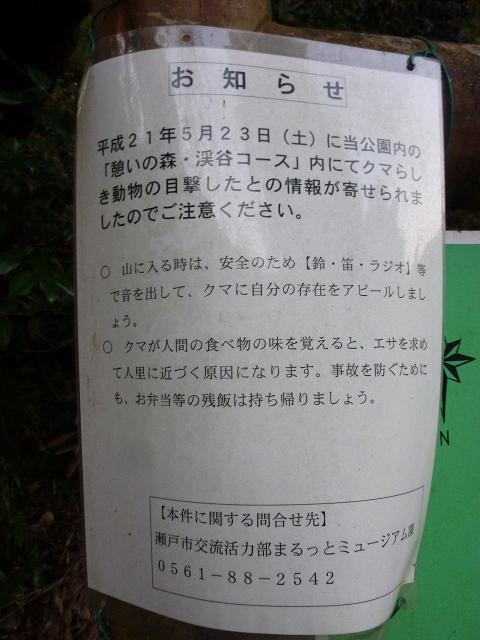 お知らせ
平成21年5月23日（土）に当公園内の
「憩いの森・渓谷コース」内にてクマらし
き動物の目撃したとの情報が寄せられま
したのでご注意ください。
○　山に入る時は、安全のため【鈴・笛・ラジオ】等
で音を出して、クマに自分の存在をアピールしまし
ょう。
○　クマが人間の食べ物の味を覚えると、エサを求め
て人里に近づく原因になります。事故を防ぐために
も、お弁当等の残飯は持ち帰りましょう。
【本件に関する問合せ先】
瀬戸市交流活力部まるっとミュージアム課
0561－88－2542
N